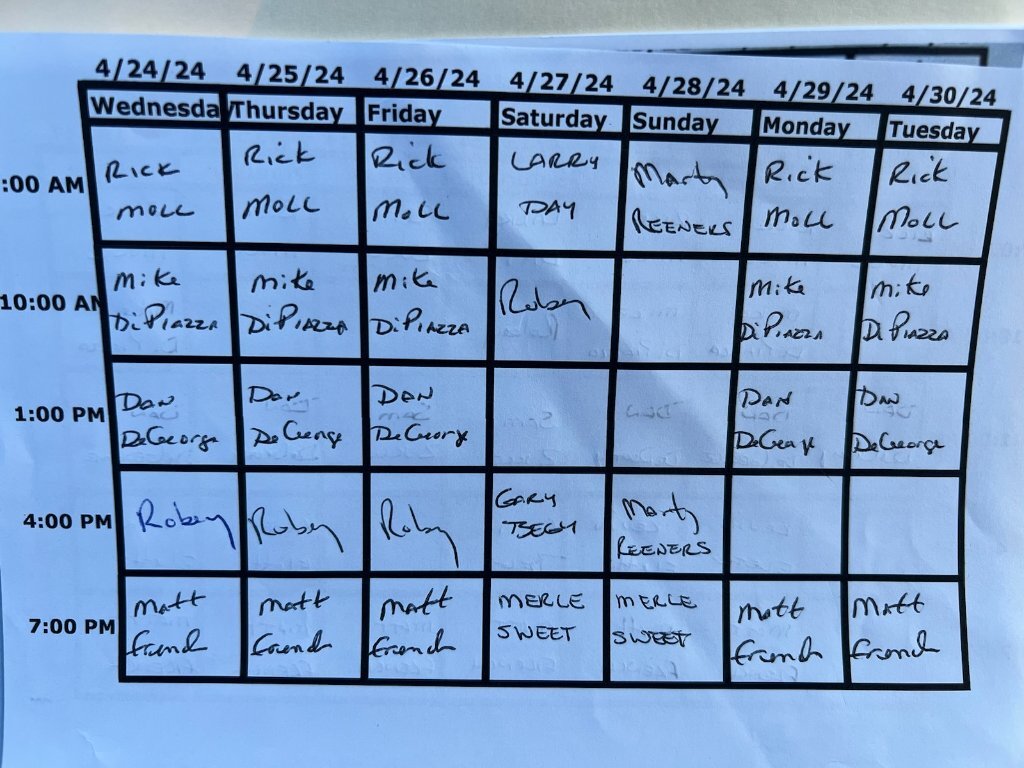 4/24/24 4/25/24 4/26/24 4/27/24 4/28/24 4/29/24 4/30/24
Wednesda Thursday Friday Saturday Sunday Monday Tuesday
:00 AM
Rick Rick Rick LARRY Marty Rick Rick
MOLL MOLL MOLL DAY REENERS MOLL MOLL
10:00 AM
Mike Mike Mike Robey Mike Mike
DiPIAZZA DiPIAZZA DiPIAZZA DiPIAZZA DiPIAZZA
1:00 PM
DAN DAN DAN DAN DAN
DeGeorge DeGeorge DeGeorge DeGeorge DeGeorge
4:00 PM
Robey Robey Robey GARY Marty
REENERS
7:00 PM
Matt Matt Matt MERLE MERLE Matt Matt
French French French SWEET SWEET French French